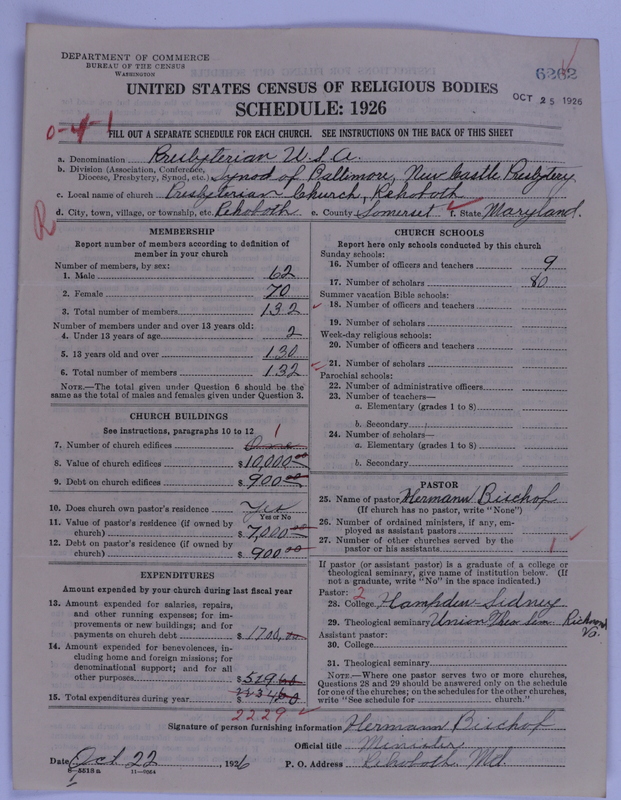 DEPARTMENT OF COMMERCE
BUREAU OF THE CENSUS
WASHINGTON
6262
UNITED STATES CENSUS OF RELIGIOUS BODIES
OCT 25 1926
SCHEDULE: 1926
0-4-1
FILL OUT A SEPARATE SCHEDULE FOR EACH CHURCH. SEE INSTRUCTIONS ON THE BACK OF THIS SHEET
a. Denomination Presbyterian U.S.A.
b. Division (Association, Conference, Diocese, Presbytery, Synod, etc.) Synod of Baltimore, New Castle Presbytery
c. Local name of church Presbyterian Church, Rehoboth
d. City, town, village, or township, etc. Rehoboth e. County Somerset f. State Maryland.
R
MEMBERSHIP
Report number of members according to definition of
member in your church
Number of members, by sex:
1. Male 62
2. Female 70
3. Total number of members 132
Number of members under and over 13 years old:
4. Under 13 years of age 2
5. 13 years old and over 130
6. Total number of members 132
NOTE.—The total given under Question 6 should be
same as the total of males and females given under Question 3.
CHURCH BUILDINGS
See instructions, paragraphs 10 to 12
1
7. Number of church edifices One
8. Value of church edifices $10,000.00
9. Debt on church edifices $900.00
10. Does church own pastor's residence Yes
Yes or No
11. Value of pastor's residence (if owned by
church) $7,000.00
12. Debt on pastor's residence (if owned by
church) $900.00
EXPENDITURES
Amount expended by your church during last fiscal year
13. Amount expended for salaries, repairs,
and other running expenses; for im-
provements or new buildings; and for
payments on church debt $1700.00
14. Amount expended for benevolences, in-
cluding home and foreign missions; for
denominational support; and for all
other purposes $529.60
15. Total expenditures during year
2229
CHURCH SCHOOLS
Report here only schools conducted by this church
Sunday schools:
16. Number of officers and teachers 9
17. Number of scholars 80
Summer vacation Bible schools:
18. Number of officers and teachers
19. Number of scholars
Week-day religious schools:
20. Number of officers and teachers
21. Number of scholars
Parochial schools:
22. Number of administrative officers
23. Number of teachers—
a. Elementary (grades 1 to 8)
b. Secondary
24. Number of scholars—
a. Elementary (grades 1 to 8)
b. Secondary
PASTOR
25. Name of pastor Hermann Bischof
(If church has no pastor, write "None")
26. Number of ordained ministers, if any, em-
ployed as assistant pastors
27. Number of other churches served by the
pastor or his assistants 1
If pastor (or assistant pastor) is a graduate of a college or
theological seminary, give name of institution below. (If
not a graduate, write "No" in the space indicated.)
Pastor: 2
28. College Hampden-Sidney
29. Theological seminary Union Theo Sem Richmond Va.
Assistant pastor:
30. College
31. Theological seminary
NOTE.—Where one pastor serves two or more churches,
Questions 28 and 29 should be answered only on the schedule
for one of the churches; on the schedules for the other churches,
write "See schedule for church."
Signature of person furnishing information Hermann Bischof
Official title Minister
Date Oct 22, 1926 P. O. Address Rehoboth Md.
8—5518a 11—9664